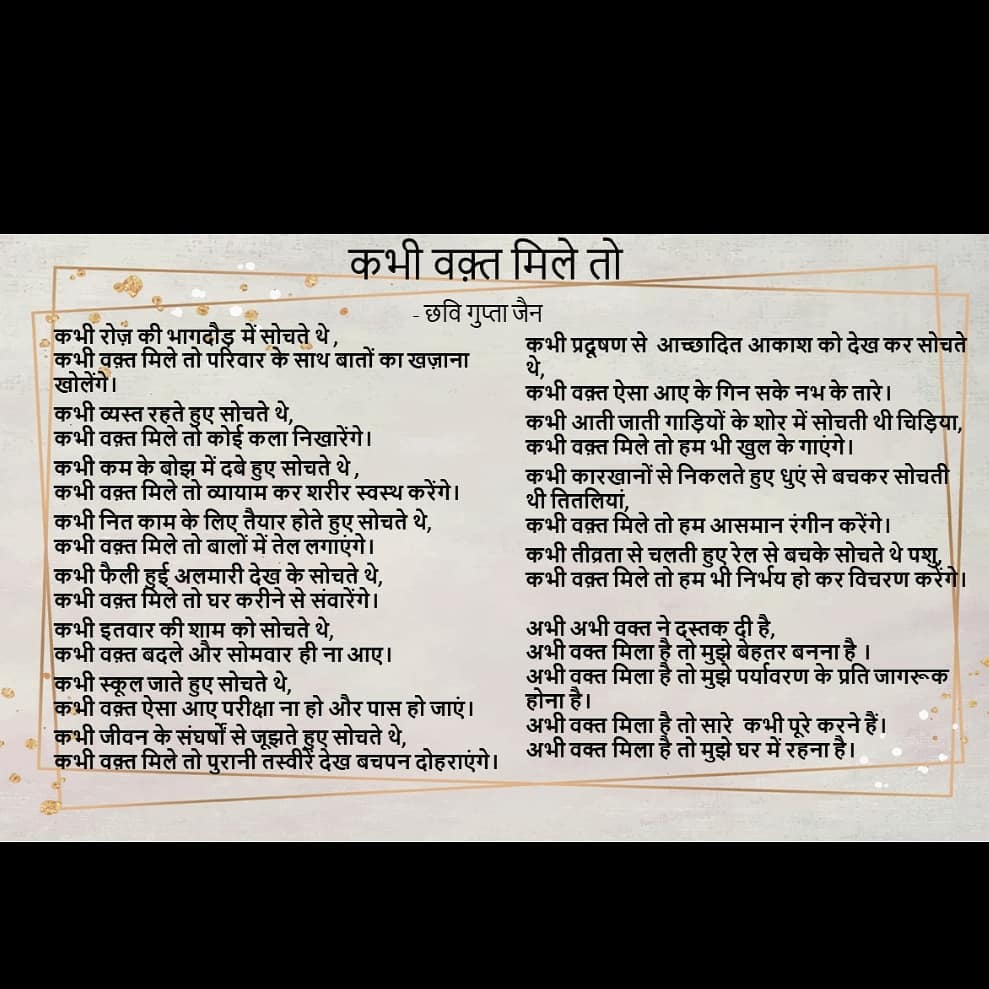 कभी वक़्त मिले तो
- छवि गुप्ता जैन
कभी रोज़ की भागदौड़ में सोचते थे ,
कभी वक़्त मिले तो परिवार के साथ बातों का खज़ाना
खोलेंगे।
कभी व्यस्त रहते हुए सोचते थे,
कभी वक़्त मिले तो कोई कला निखारेंगे।
कभी कम के बोझ में दबे हुए सोचते थे ,
कभी वक़्त मिले तो व्यायाम कर शरीर स्वस्थ करेंगे।
कभी नित काम के लिए तैयार होते हुए सोचते थे,
कभी वक़्त मिले तो बालों में तेल लगाएंगे।
कभी फैली हुई अलमारी देख के सोचते थे,
कभी वक़्त मिले तो घर करीने से संवारेंगे।
कभी इतवार की शाम को सोचते थे,
कभी वक़्त बदले और सोमवार ही ना आए।
कभी स्कूल जाते हुए सोचते थे,
कभी वक़्त ऐसा आए परीक्षा ना हो और पास हो जाएं।
कभी जीवन के संघर्षों से जूझते हुए सोचते थे,
कभी वक़्त मिले तो पुरानी तस्वीरें देख बचपन दोहराएंगे।
कभी प्रदूषण से आच्छादित आकाश को देख कर सोचते
थे,
कभी वक़्त ऐसा आए के गिन सके नभ के तारे।
कभी आती जाती गाड़ियों के शोर में सोचती थी चिड़िया,
कभी वक़्त मिले तो हम भी खुल के गाएंगे।
कभी कारखानों से निकलते हुए धुएं से बचकर सोचती
थी तितलियां,
कभी वक़्त मिले तो हम आसमान रंगीन करेंगे।
कभी तीव्रता से चलती हुए रेल से बचके सोचते थे पशु,
कभी वक़्त मिले तो हम भी निर्भय हो कर विचरण करेंगे।
अभी अभी वक्त ने दस्तक दी है,
अभी वक्त मिला है तो मुझे बेहतर बनना है ।
अभी वक्त मिला है तो मुझे पर्यावरण के प्रति जागरूक
होना है।
अभी वक्त मिला है तो सारे कभी पूरे करने हैं।
अभी वक्त मिला है तो मुझे घर में रहना है।